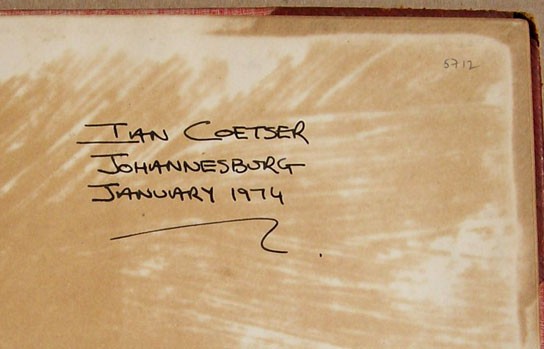 5712
IAN COETSER
JOHANNESBURG
JANUARY 1974